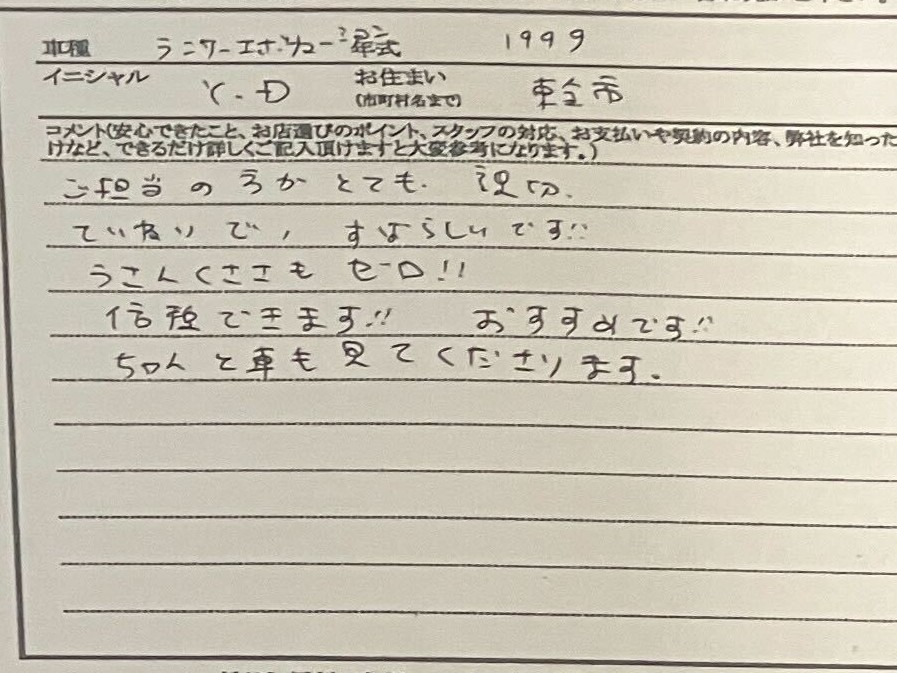 車種 ランサーエボリューション 年式 1999
イニシャル Y.D お住まい(市町村名まで) 東金市
コメント(安心できたこと、お店選びのポイント、スタッフの対応、お支払いや契約の内容、弊社を知った
けなど、できるだけ詳しくご記入頂けますと大変参考になります。)
ご担当の方がとても、親切、
ていねいで、すばらしいです!!
うさんくささもゼロ!!
信頼できます!! おすすめです!!
ちゃんと車も見てくださります。